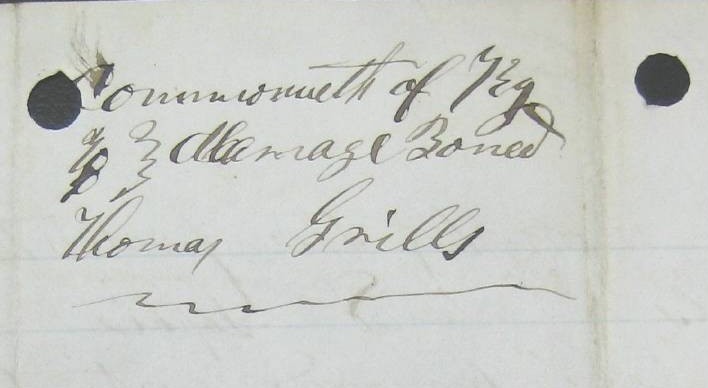 Commonwealth of Ky
Marriage Bond
Thomas Grills